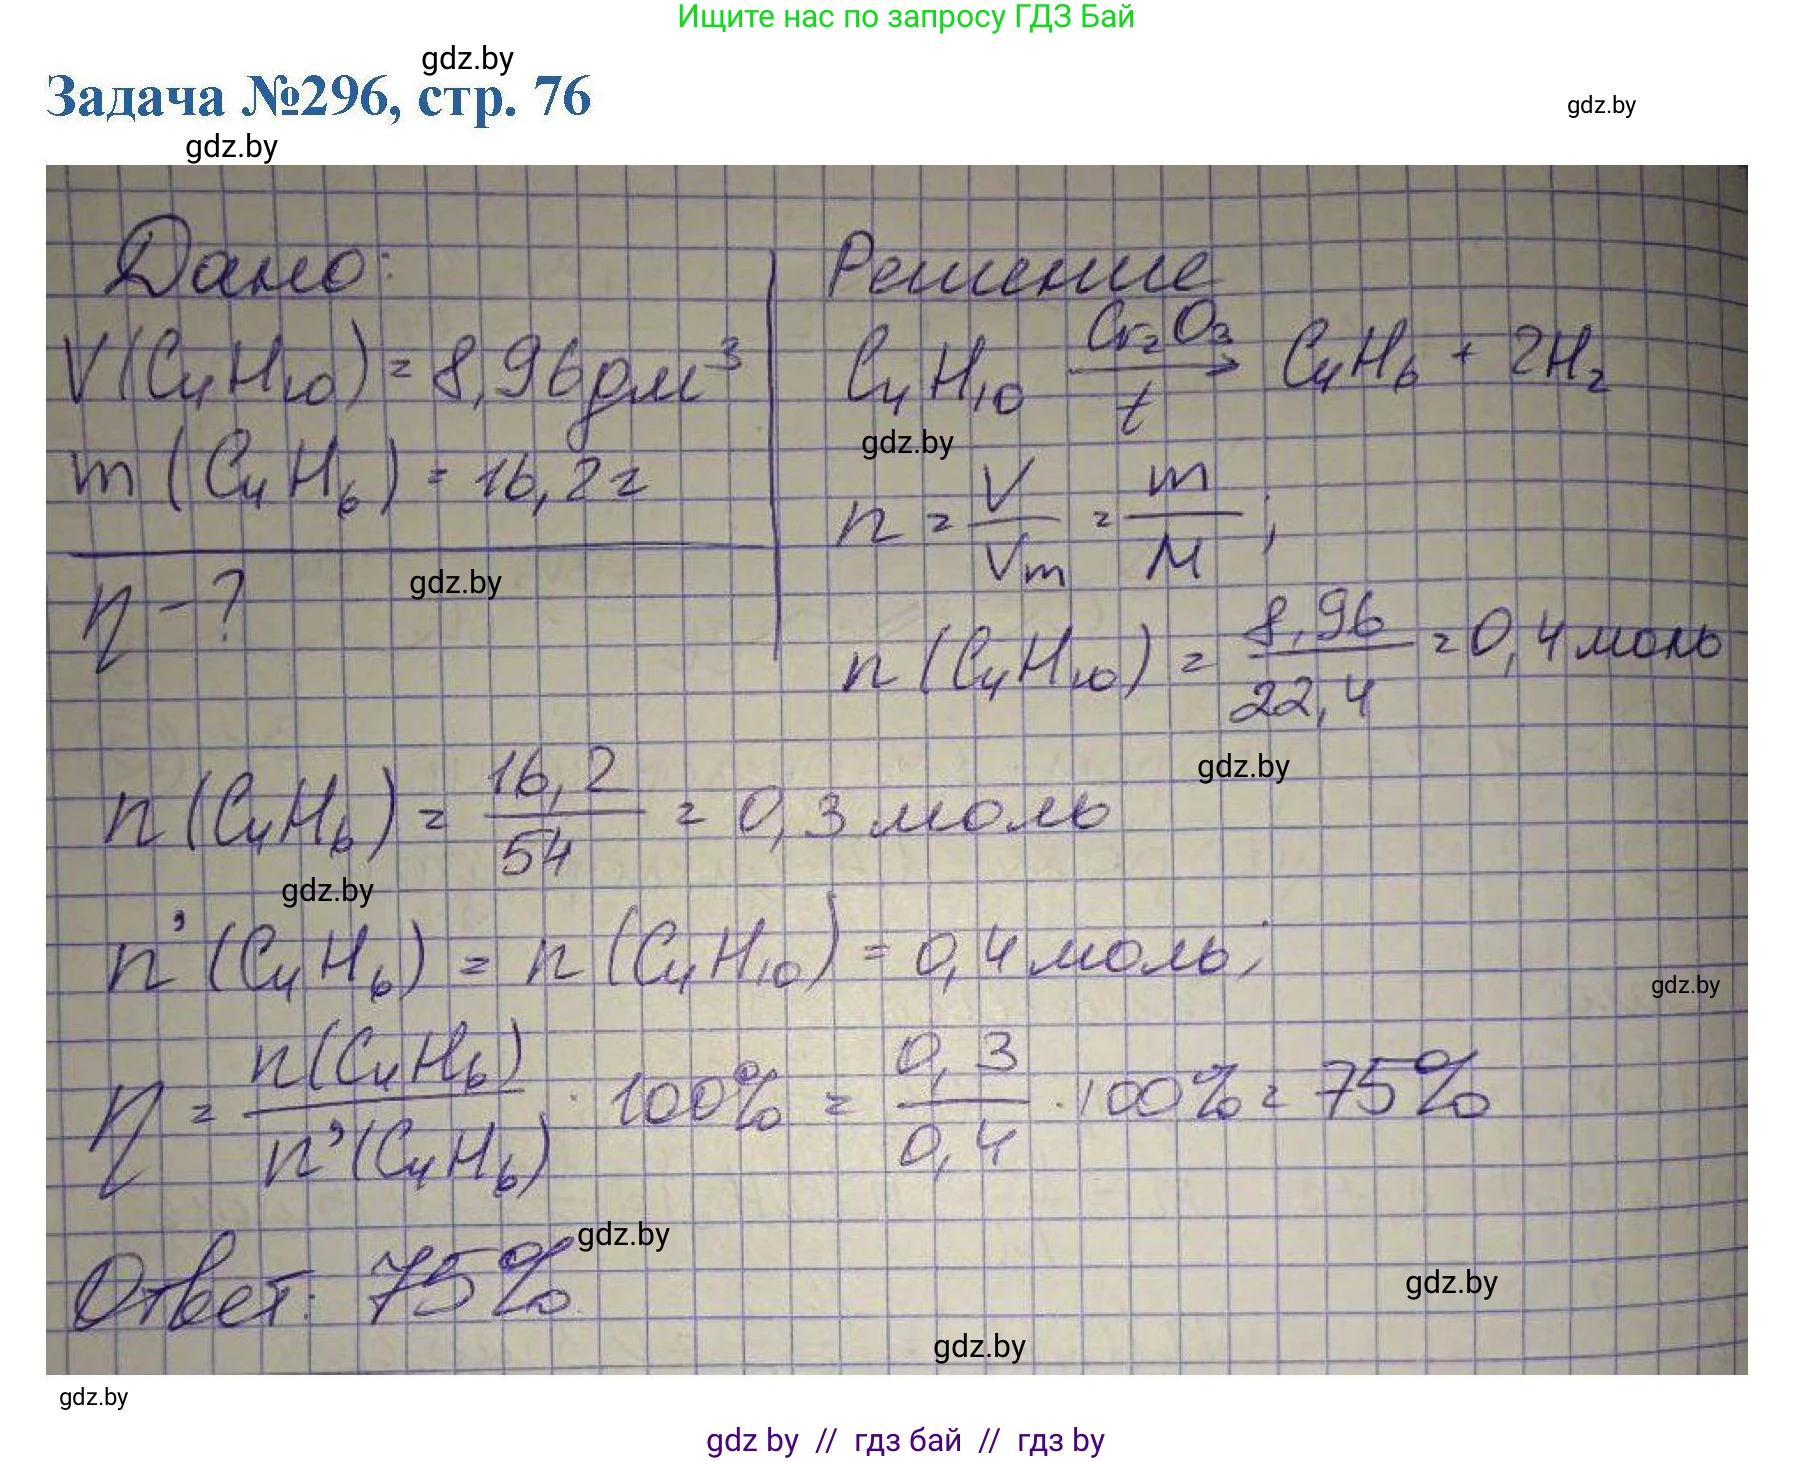 Ищите нас по запросу ГДЗ Бай
gdz.by
Задача №296, стр. 76
gdz.by
gdz.by
Дано:
V(C₄H₁₀) = 8,96 дм³
m (C₄H₆) = 16,2 г
η - ?
gdz.by
Решение
C₄H₁₀ Cr₂O₃ → t C₄H₆ + 2H₂
gdz.by
n = V/Vm = m/M ;
n (C₄H₁₀) = 8,96/22,4 = 0,4 моль
gdz.by
n (C₄H₆) = 16,2/54 = 0,3 моль
gdz.by
n' (C₄H₆) = n (C₄H₁₀) = 0,4 моль;
gdz.by
η = n(C₄H₆)/n'(C₄H₆) · 100% = 0,3/0,4 · 100% = 75%
gdz.by
Ответ: 75%.
gdz.by
gdz.by
gdz.by
gdz by // гдз бай // гдз by